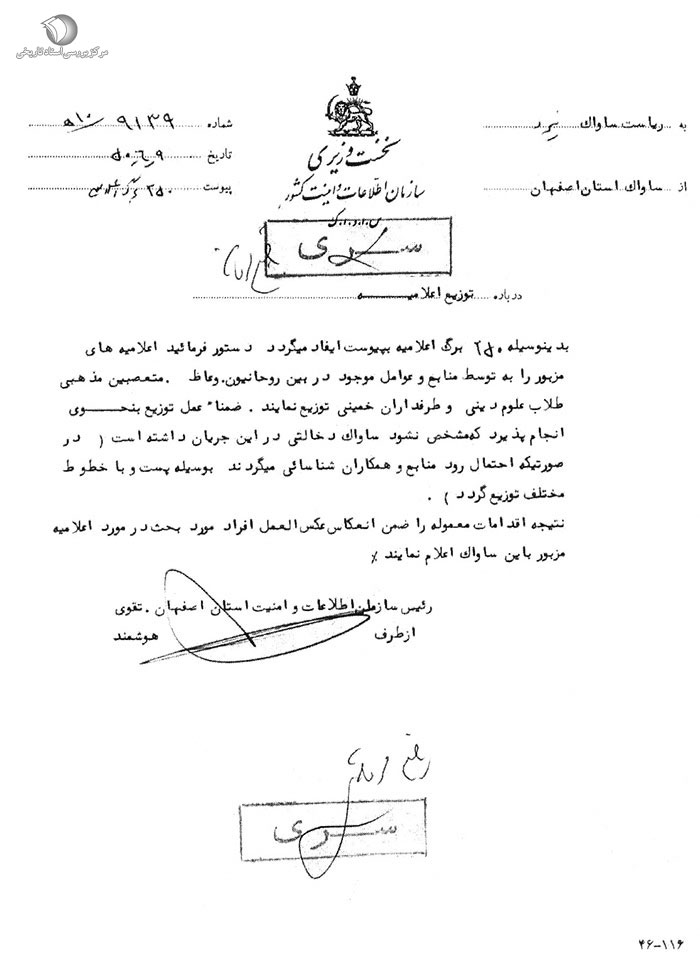 مرکز بررسی اسناد تاریخی
نخست وزیری
سازمان اطلاعات و امنیت کشور
س.ا.و.ا.ک
به ریاست ساواک یزد
از ساواک استان اصفهان
شماره ۹۱۳۹/۵۱۰
تاریخ ۵۰.۶.۹
پیوست ۲۵۰ برگ
سری
درباره توزیع اعلامیه
بدینوسیله ۲۵۰ برگ اعلامیه بپیوست ایفاد میگردد دستور فرمائید اعلامیه های
مزبور را به توسط منابع و عوامل موجود در بین روحانیون.وعاظ .متعصبین مذهبی
طلاب علوم دینی و طرفداران خمینی توزیع نمایند . ضمناً عمل توزیع بنحوی
انجام پذیرد که مشخص نشود ساواک دخالتی در این جریان داشته است ( در
صورتیکه احتمال رود منابع و همکاران شناسائی میگردند بوسیله پست و با خطوط
مختلف توزیع گردد ) .
نتیجه اقدامات معموله را ضمن انعکاس عکس العمل افراد مورد بحث در مورد اعلامیه
مزبور باین ساواک اعلام نمایند ٪
رئیس سازمان اطلاعات و امنیت استان اصفهان . تقوی
از طرف هوشمند
سری
۴۶-۱۱۶